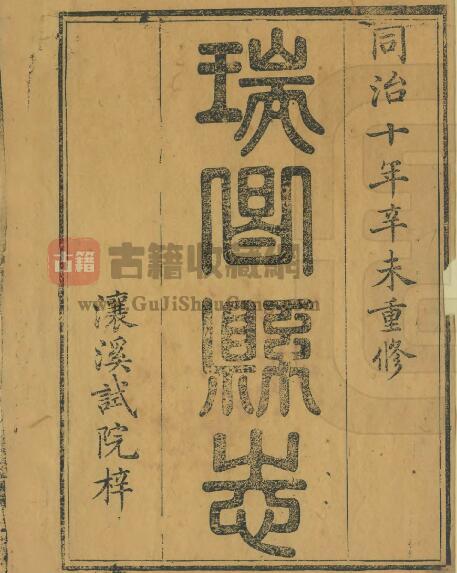 同治十年辛未重修
瑞昌縣志
瀼溪試院梓
古籍 古籍收藏網
www.GuJiShu